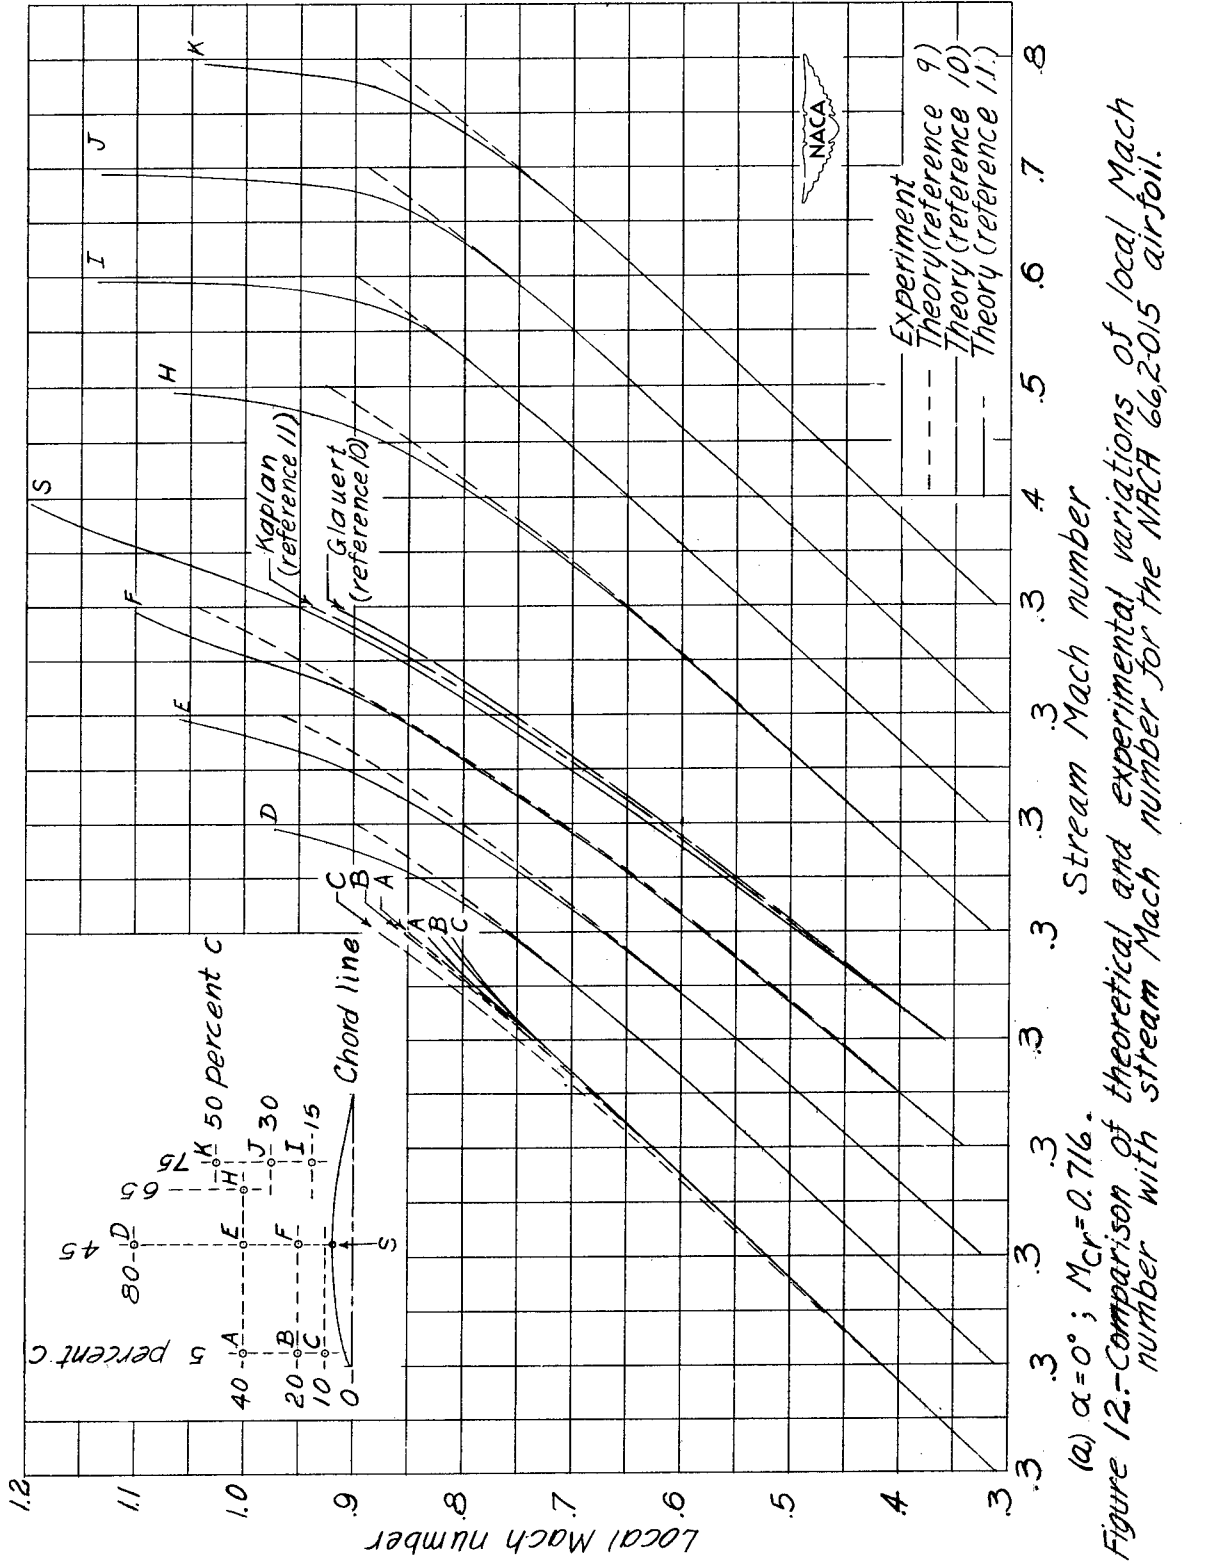 1.2
1.1
1.0
.9
.8
.7
.6
.5
.4
.3
Local Mach number
percent c
5
45
65
75
80
40
20
10
0
A
B
C
D
E
F
H
K 50 percent c
J 30
I 15
S
Chord line
C
B
A
A
B
C
D
E
F
S
H
I
J
K
Kaplan
(reference 11)
Glauert
(reference 10)
NACA
Experiment
Theory (reference 9)
Theory (reference 10)
Theory (reference 11.)
.3 .3 .3 .3 .3 .3 .3 .3 .3 .4 .5 .6 .7 .8
Stream Mach number
(a) α = 0° ; Mcr = 0.716.
Figure 12.- Comparison of theoretical and experimental variations of local Mach
number with stream Mach number for the NACA 66,2-015 airfoil.